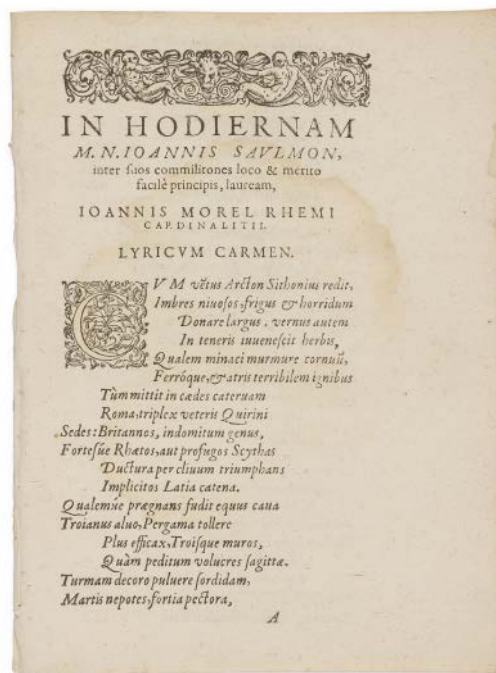 IN HODIERNAM
M. N. IOANNIS SAVLMON,
inter suos commilitones loco & merito
facilè principis, lauream,
IOANNIS MOREL RHEMI
CARDINALITII.
LYRICVM CARMEN.
CVM vẽtus Arcton Sithonius redit,
Imbres niuosos, frigus & horridum
Donare largus. vernus autem
In teneris iuuenescit herbis,
Qualem minaci murmure cornuũ,
Ferróque, & atris terribilem ignibus
Tùm mittit in cædes cateruam
Roma, triplex veteris Quirini
Sedes: Britannos, indomitum genus,
Fortesúe Rhætos, aut profugos Scythas
Ductura per cliuum triumphans
Implicitos Latia catena.
Qualemúe prægnans fudit equus caua
Troianus aluo, Pergama tollere
Plus efficax, Troisque muros,
Quàm peditum volucres sagittæ.
Turmam decoro puluere sordidam,
Martis nepotes, fortia pectora,
A